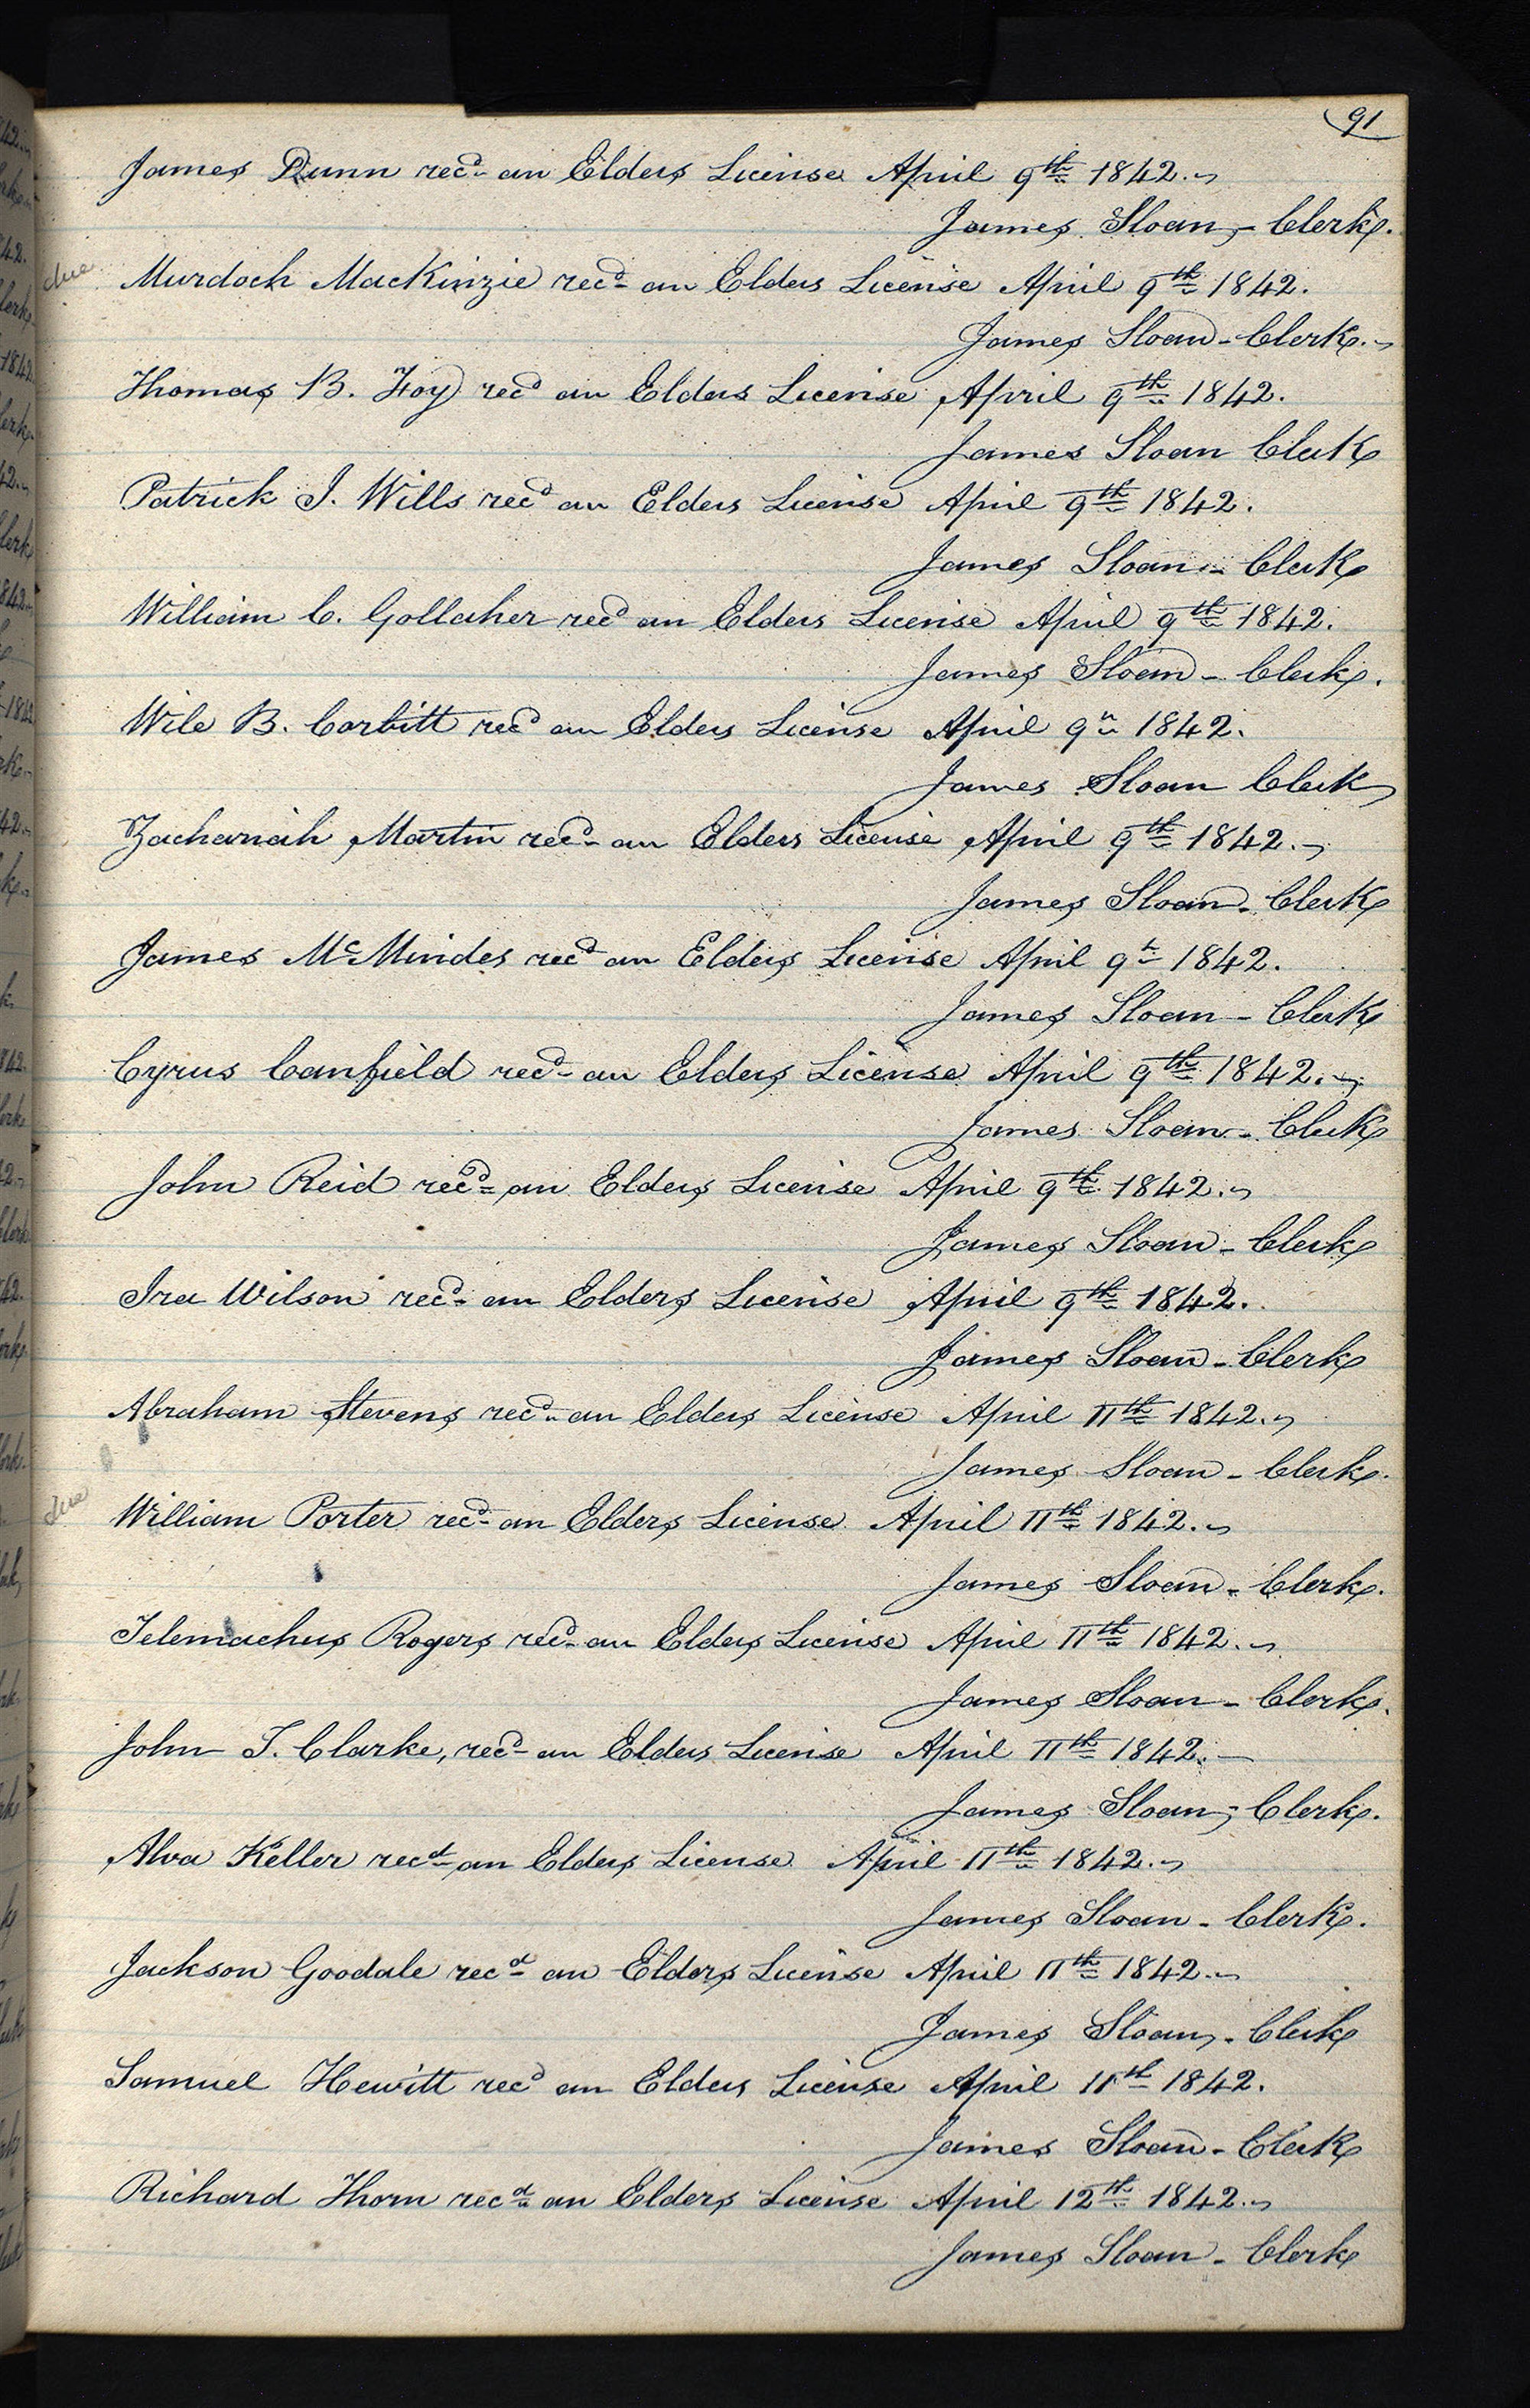 91
James Dunn recd an Elders License April 9th 1842.
James Sloan, - Clerk.
due Murdoch MacKinzie recd an Elders License April 9th 1842.
James Sloan - Clerk.
Thomas B. Foy recd an Elders License April 9th 1842.
James Sloan Clerk
Patrick I. Wills recd an Elders License April 9th 1842.
James Sloan - Clerk
William C. Gollaher recd an Elders License April 9th 1842.
James Sloan - Clerk.
Wile B. Corbitt recd an Elders License April 9th 1842.
James Sloan Clerk
Zachariah Martin recd an Elders License April 9th 1842.
James Sloan - Clerk
James McMindes recd an Elders License April 9th 1842.
James Sloan - Clerk
Cyrus Canfield recd an Elders License April 9th 1842.
James Sloan - Clerk
John Reid recd an Elders License April 9th 1842.
James Sloan - Clerk
Ira Wilson recd an Elders License April 9th 1842.
James Sloan - Clerk
Abraham Stevens recd an Elders License April 11th 1842.
James Sloan - Clerk.
due William Porter recd an Elders License April 11th 1842.
James Sloan - Clerk.
Telemachus Rogers recd an Elders License April 11th 1842.
James Sloan - Clerk.
John T. Clarke, recd an Elders License April 11th 1842.
James Sloan, Clerk.
Alva Keller recd an Elders License April 11th 1842.
James Sloan - Clerk.
Jackson Goodale recd an Elders License April 11th 1842.
James Sloan, - Clerk
Samuel Hewitt recd an Elders License April 11th 1842.
James Sloan - Clerk
Richard Thorn recd an Elders License April 12th 1842.
James Sloan - Clerk